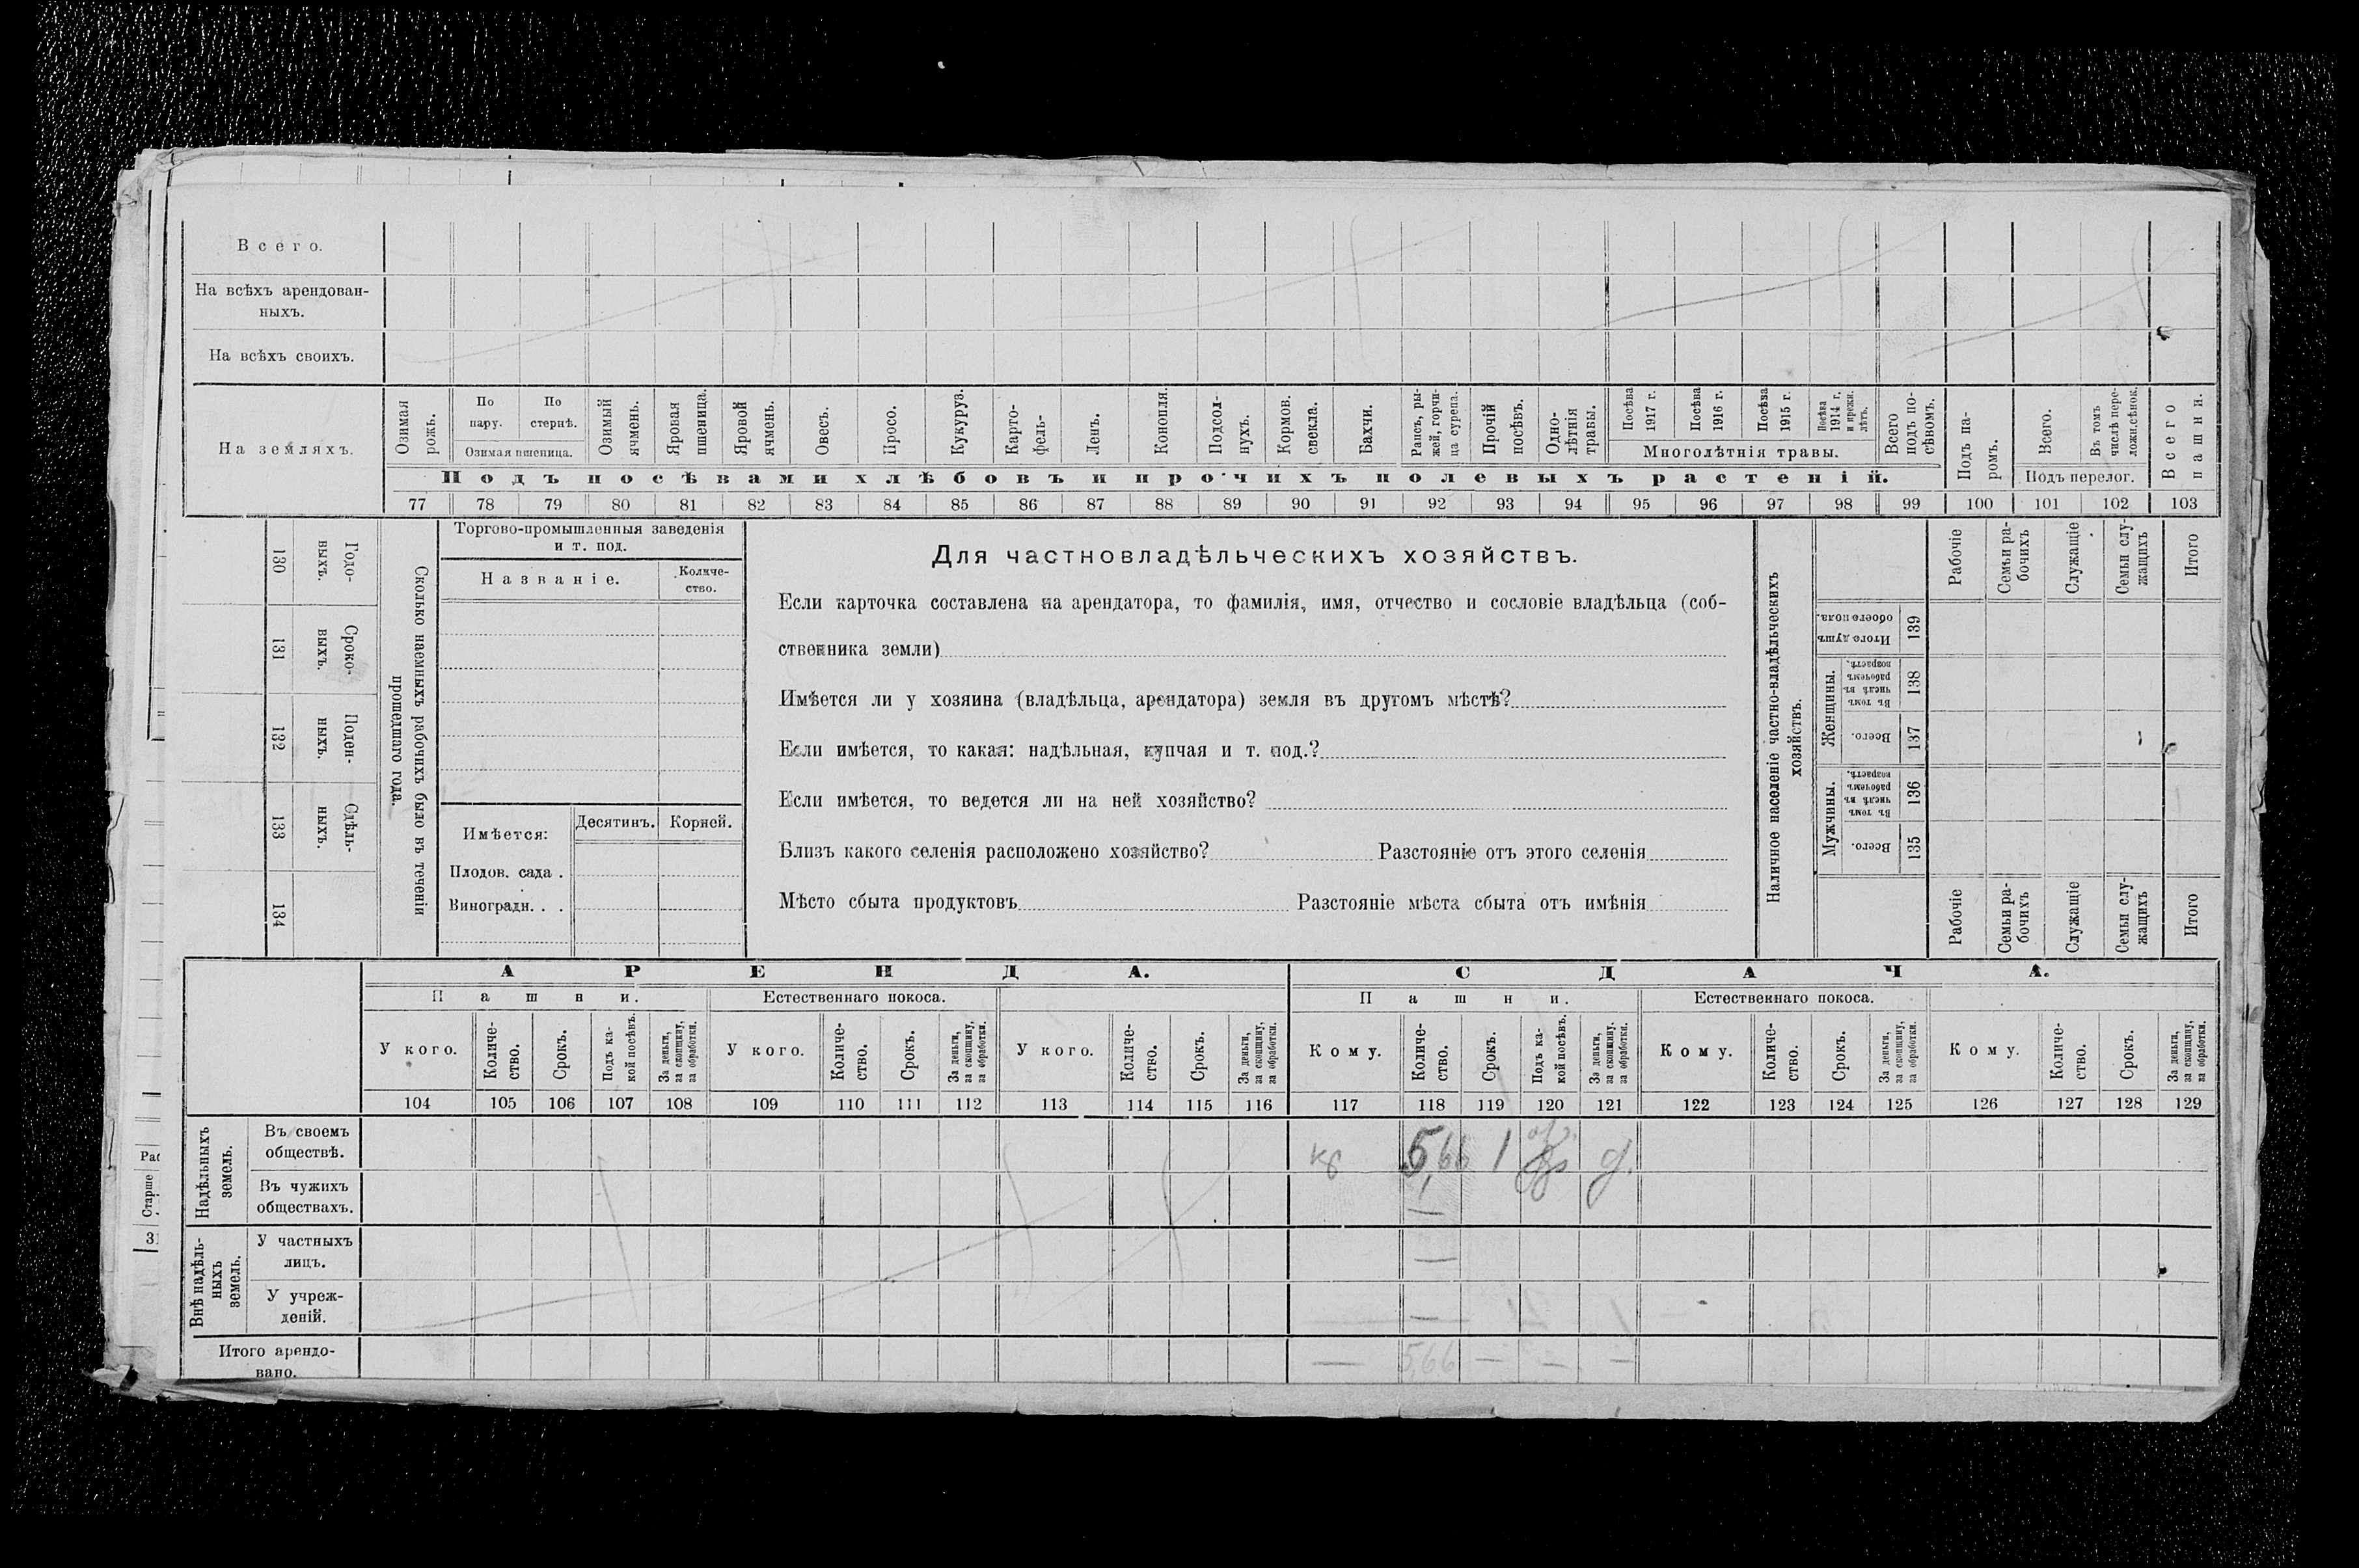 Всего.
На всѣхъ арендован-
ныхъ.
На всѣхъ своихъ.
На земляхъ.
Озимая рожь.
По пару.
По стернѣ.
Озимая пшеница.
Озимый ячмень.
Яровая пшеница.
Яровой ячмень.
Овесъ.
Просо.
Кукуруз.
Карто-
фель-
Ленъ.
Конопля.
Подсол-
нухъ.
Кормов.
свекла.
Бахчи.
Рапсъ, ры-
жей, горчи-
ца сурепа.
Прочій
посѣвъ.
Одно-
лѣтнія
травы.
Посѣва
1917 г.
Посѣва
1916 г.
Посѣва
1915 г.
Посѣва
1914 г.
и прежн.
лѣтъ.
Многолѣтнія травы.
Всего
подъ по-
сѣвомъ.
Подъ па-
ромъ.
Всего.
Въ томъ
числѣ пере-
ложн.сѣнок.
Подъ перелог.
Всего
пашни.
Подъ посѣвами хлѣбовъ и прочихъ полевыхъ растеній.
77 78 79 80 81 82 83 84 85 86 87 88 89 90 91 92 93 94 95 96 97 98 99 100 101 102 103
130
Годо-
выхъ.
131
Сроко-
выхъ.
132
Поден-
ныхъ.
133
Сдѣль-
ныхъ.
134
Сколько наемныхъ рабочихъ было въ теченіи
прошедшаго года.
Торгово-промышленныя заведенія
и т. под.
Названіе.
Количе-
ство.
Имѣется:
Десятинъ.
Корней.
Плодов. сада .
Виноградн. . .
Для частновладѣльческихъ хозяйствъ.
Если карточка составлена на арендатора, то фамилія, имя, отчество и сословіе владѣльца (соб-
ственника земли)
Имѣется ли у хозяина (владѣльца, арендатора) земля въ другомъ мѣстѣ?
Если имѣется, то какая: надѣльная, купчая и т. под.?
Если имѣется, то ведется ли на ней хозяйство?
Близъ какого селенія расположено хозяйство? Разстояніе отъ этого селенія
Мѣсто сбыта продуктовъ Разстояніе мѣста сбыта отъ имѣнія
Наличное населеніе частно-владѣльческихъ
хозяйствъ.
Рабочіе
Семьи ра-
бочихъ
Служащіе
Семьи слу-
жащихъ
Итого
Итого душъ
обоего пола.
139
Женщины.
Въ томъ
числѣ въ
рабочемъ
возрастѣ.
138
Всего.
137
Мужчины.
Въ томъ
числѣ въ
рабочемъ
возрастѣ.
136
Всего.
135
Рабочіе
Семьи ра-
бочихъ
Служащіе
Семьи слу-
жащихъ
Итого
АРЕНДА.
СДАЧА.
Пашни.
Естественнаго покоса.
Пашни.
Естественнаго покоса.
У кого.
Количе-
ство.
Срокъ.
Подъ ка-
кой посѣвъ.
За деньги,
за скопщину,
за обработки.
У кого.
Количе-
ство.
Срокъ.
За деньги,
за скопщину,
за обработки.
У кого.
Количе-
ство.
Срокъ.
За деньги,
за скопщину,
за обработки.
Кому.
Количе-
ство.
Срокъ.
Подъ ка-
кой посѣвъ.
За деньги,
за скопщину.
за обработки.
Кому.
Количе-
ство.
Срокъ.
За деньги,
за скопщину,
за обработки.
Кому.
Количе-
ство.
Срокъ.
За деньги,
за скопщину,
за обработки.
104 105 106 107 108 109 110 111 112 113 114 115 116 117 118 119 120 121 122 123 124 125 126 127 128 129
Надѣльныхъ
земель.
Въ своемъ
обществѣ.
5,66 1
Въ чужихъ
обществахъ.
—
Внѣ надѣль-
ныхъ
земель.
У частныхъ
лицъ.
—
У учреж-
деній.
—
Итого арендо-
вано.
— 5,66 — — —
Раб
Старше
31